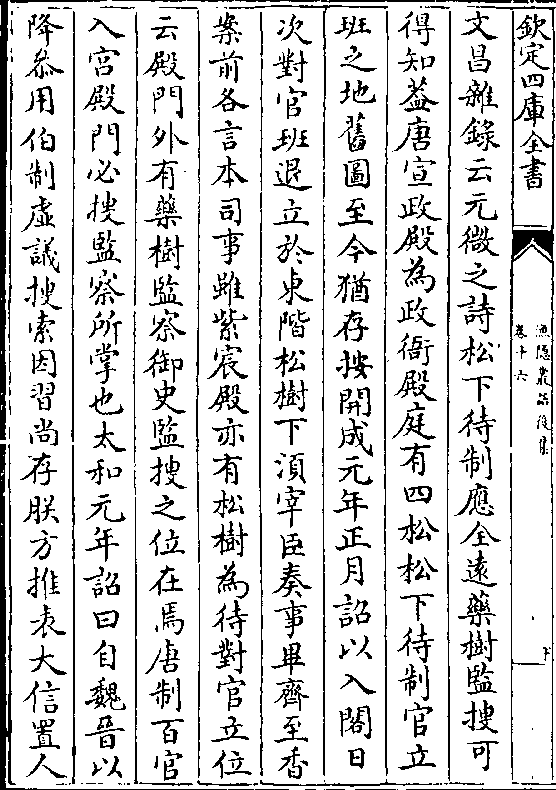 欽定四庫全書
漁隱叢話後集
卷十六
文昌雜錄云元微之詩松下待制應全遠藥樹監搜可
得知葢唐宣政殿為政衙殿庭有四松松下待制官立
班之地舊圖至今猶存按開成元年正月詔以入閤日
次對官班退立於東階松樹下湏宰臣奏事畢齊至香
案前各言本司事雖紫宸殿亦有松樹為待對官立位
云殿門外有藥樹監察御史監搜之位在焉唐制百官
入宫殿門必搜監察所掌也太和元年詔曰自魏晉以
降叅用伯制虚議搜索因習尚存朕方推表大信置人